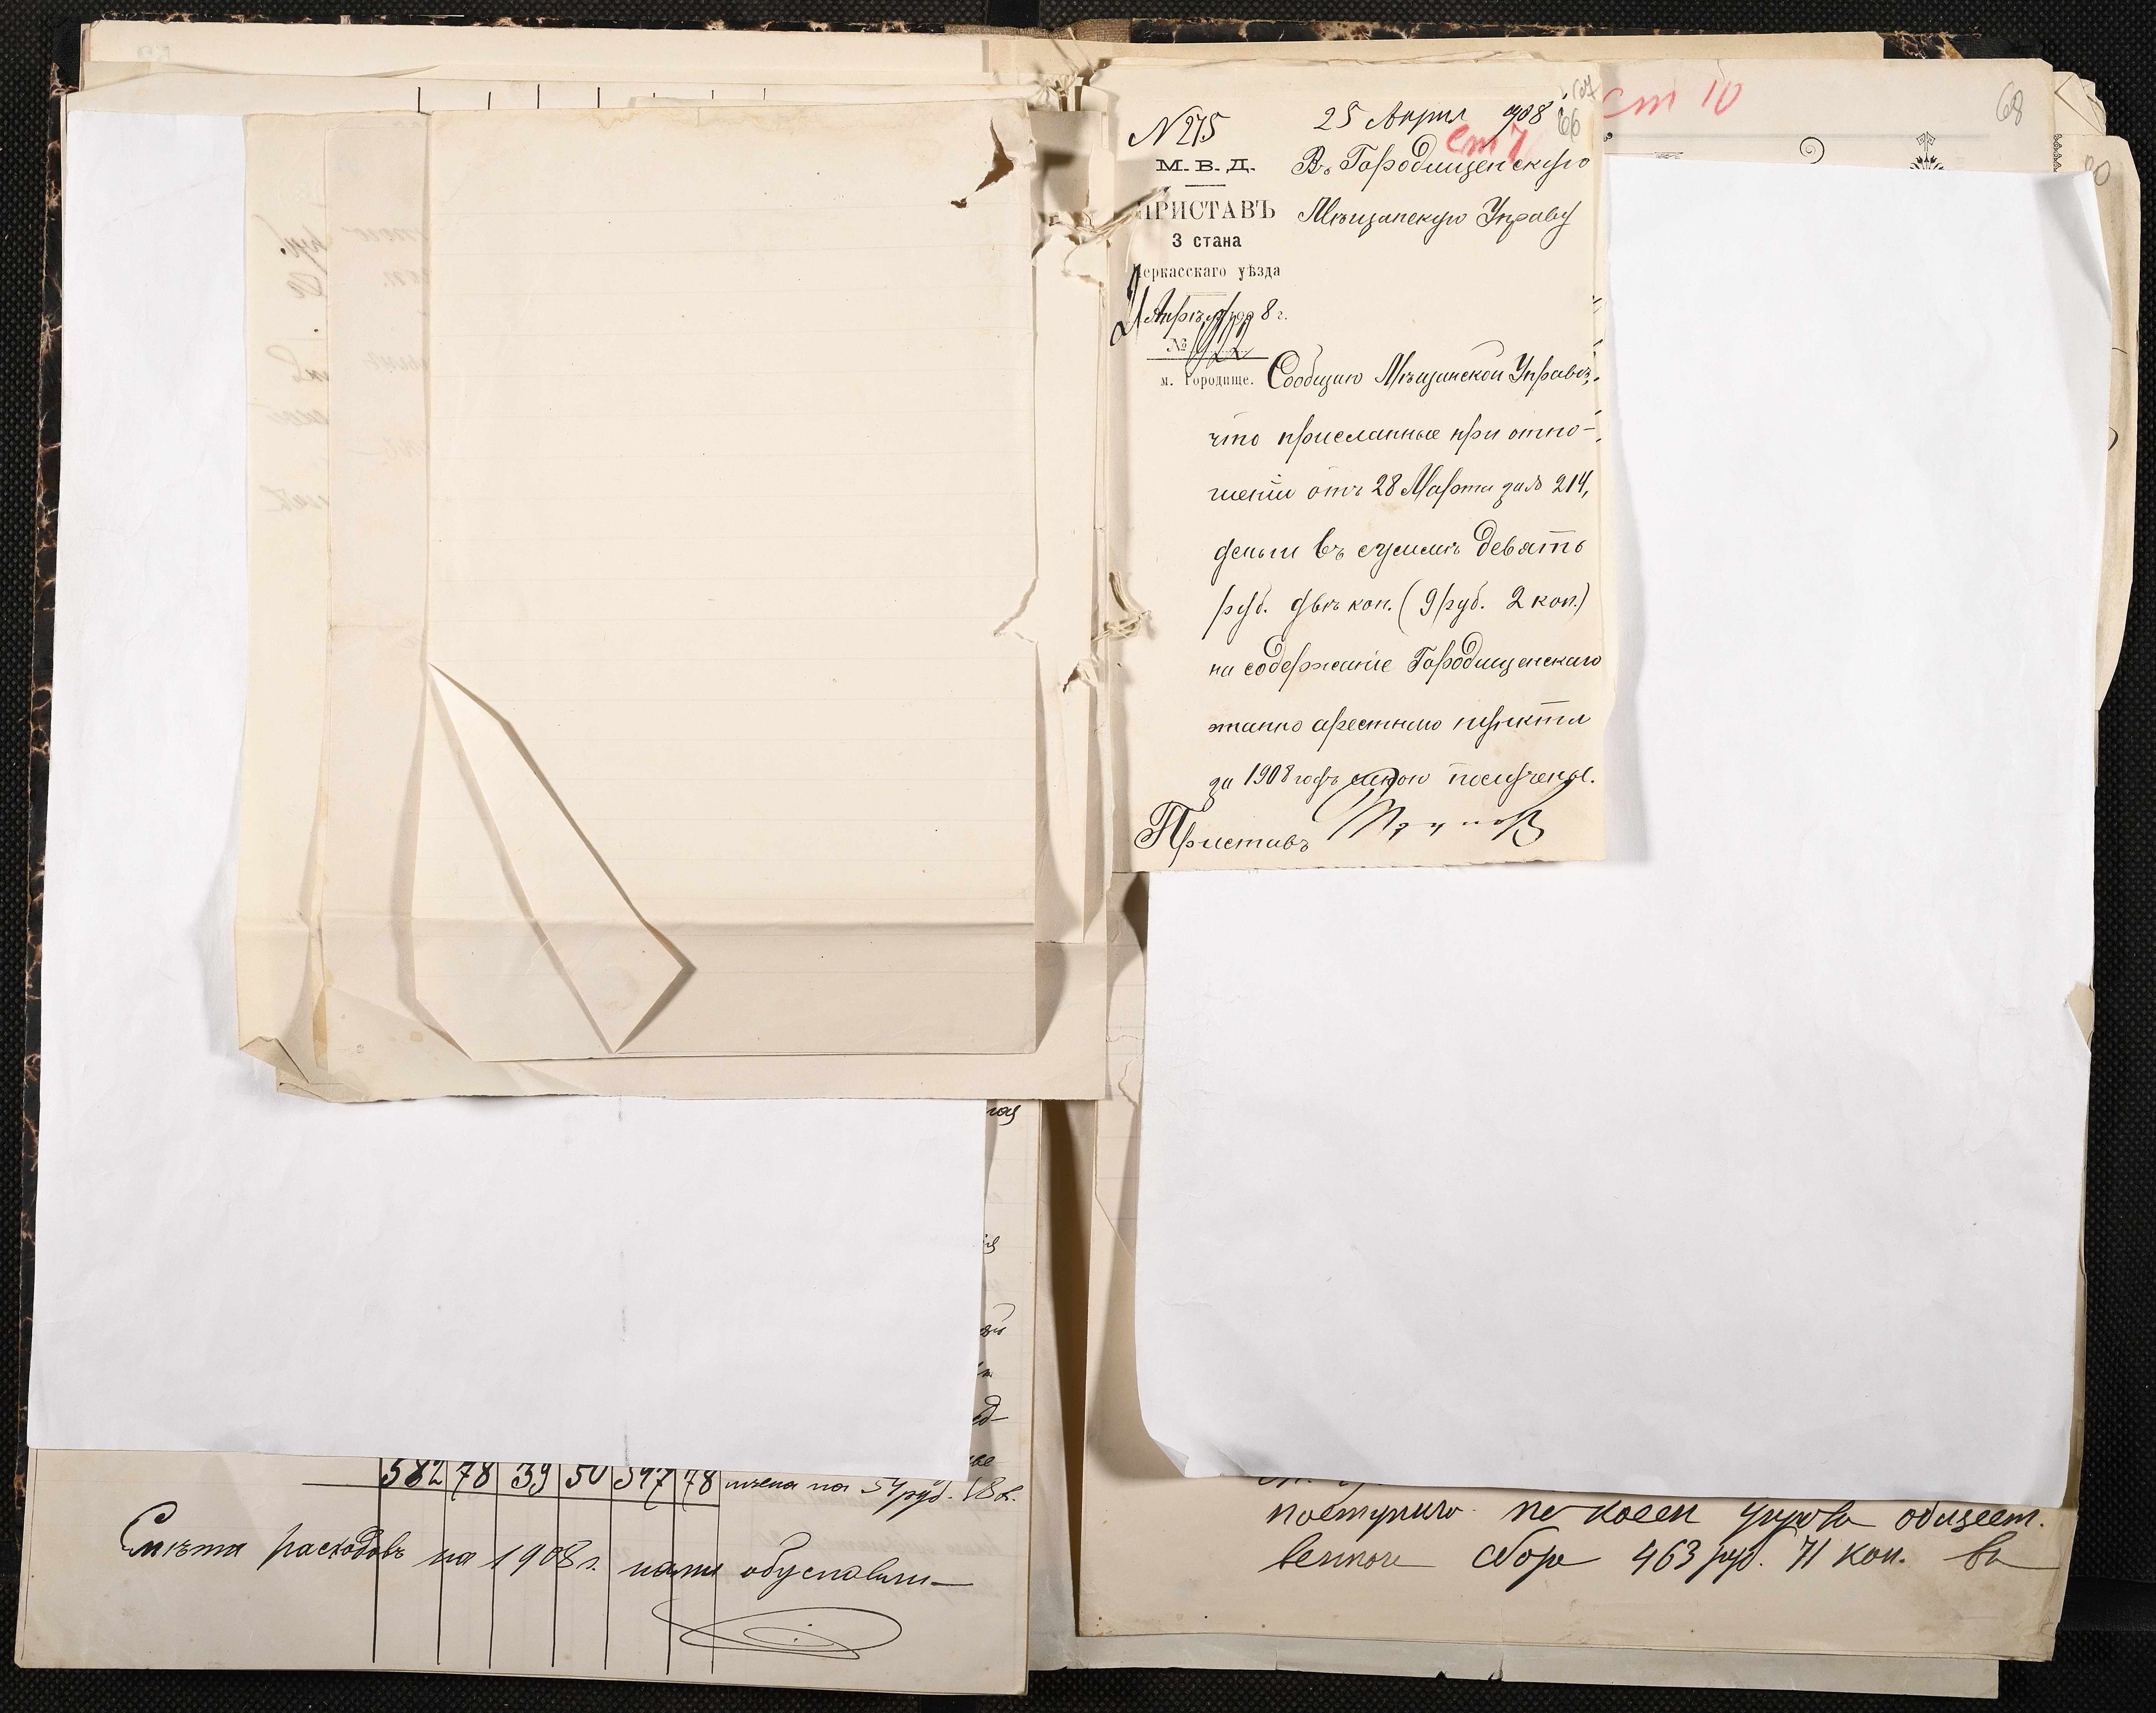 582 78 39 50 547 78 руб. 18 к.
Смѣта расходовъ на 1908 г. нами
ст 10
68
67
66
№ 275
25 Април 1908
ст 7
М. В. Д.
ПРИСТАВЪ
3 стана
Черкасскаго уѣзда
21 Апрѣля 1908 г.
№ 922
м. Городище.
Въ Городищенскую
Мѣщанскую Управу
Сообщаю Мѣщанской Управѣ,
что присланные при отно-
шеніи отъ 28 Марта за № 214,
деньги въ суммѣ девять
руб. двѣ коп. (9 руб. 2 коп.)
на содержаніе Городищенскаго
этапно арестнаго пункта
за 1908 годъ мною получены.
Приставъ
поступило общест.
веннаго сбора 463 руб. 71 коп. въ